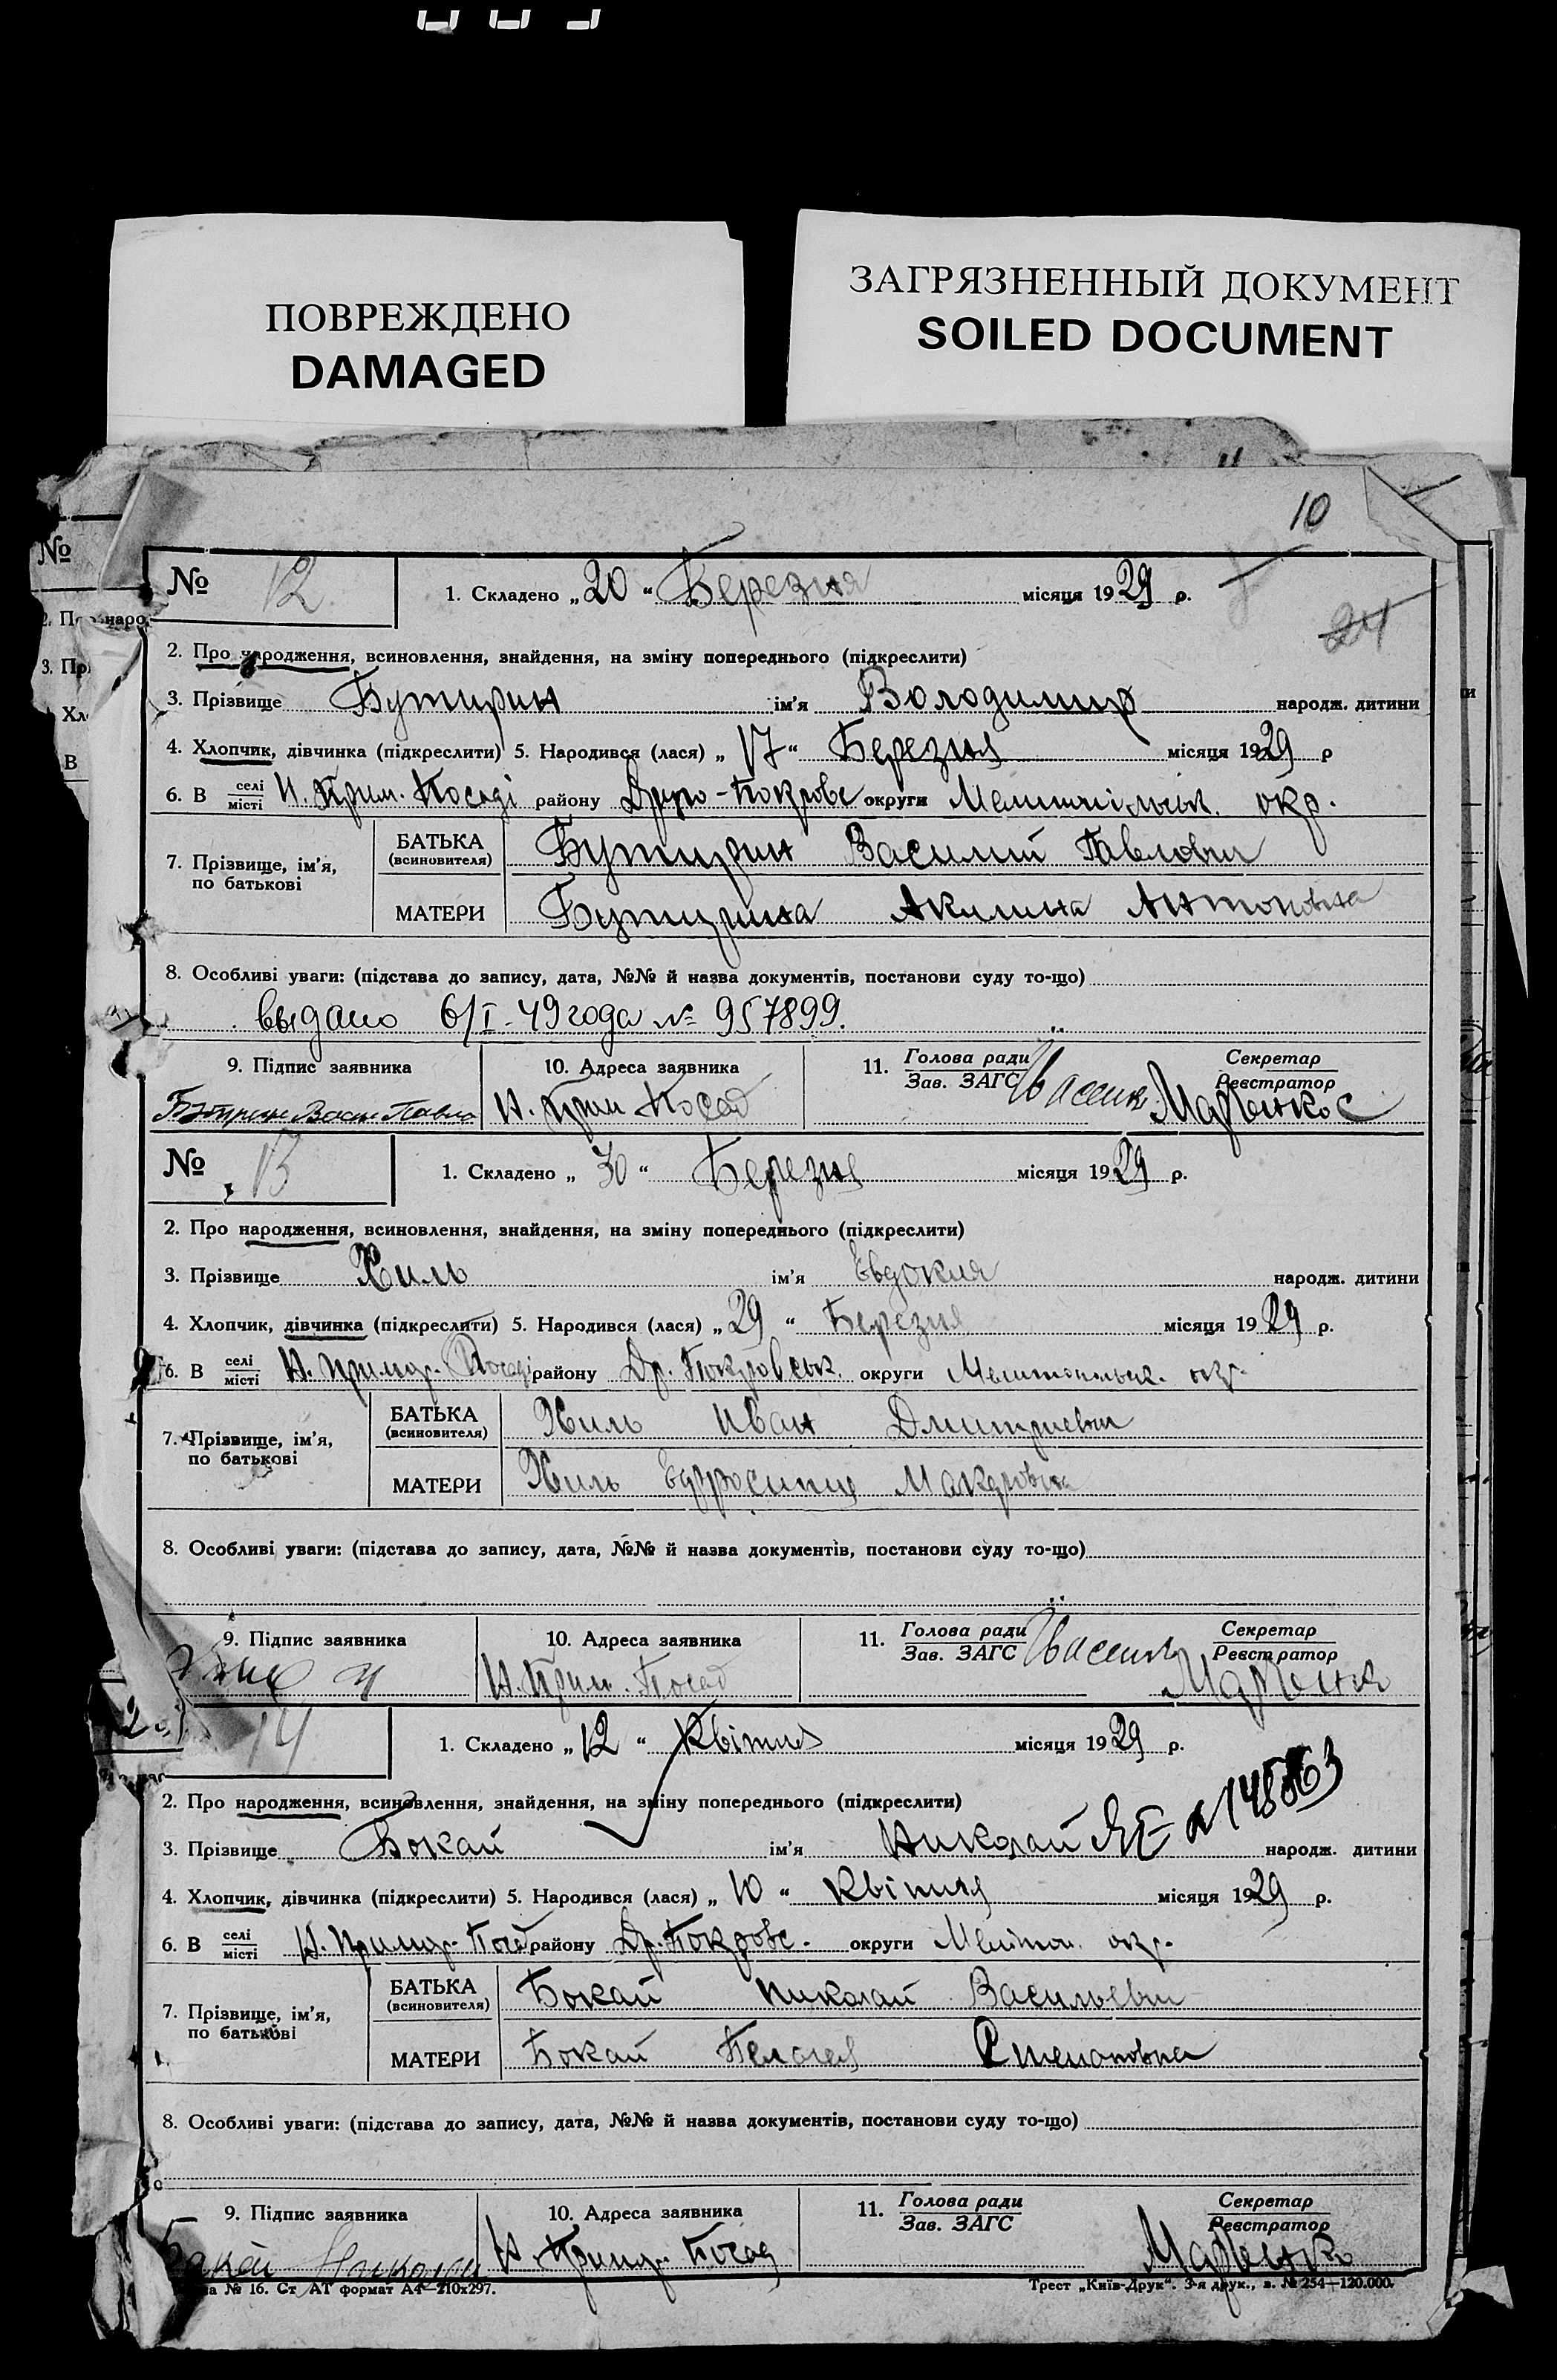 ПОВРЕЖДЕНО
DAMAGED
ЗАГРЯЗНЕННЫЙ ДОКУМЕНТ
SOILED DOCUMENT
10
24
№ 12
1. Складено „20“ Березня місяця 1929 р.
2. Про народження, всиновлення, знайдення, на зміну попереднього (підкреслити)
3. Прізвище Бутирин ім'я Володимир народж. дитини
4. Хлопчик, дівчинка (підкреслити) 5. Народився (лася) „17“ Березня місяця 1929 р
6. В селі місті Н. Прим. Посаді району Друго-Покровс округи Мелитопільськ. окр.
7. Прізвище, ім'я, по батькові
БАТЬКА (всиновителя) Бутирин Василий Павлович
МАТЕРИ Бутирина Акилина Антоновна
8. Особливі уваги: (підстава до запису, дата, №№ й назва документів, постанови суду то-що)
выдано 6/I-49 года № 957899.
9. Підпис заявника 10. Адреса заявника 11. Голова ради Зав. ЗАГС Секретар Реєстратор
Н. Прим Посад Марченко
№ 13
1. Складено „30“ Березня місяця 1929 р.
2. Про народження, всиновлення, знайдення, на зміну попереднього (підкреслити)
3. Прізвище Хиль ім'я Евдокия народж. дитини
4. Хлопчик, дівчинка (підкреслити) 5. Народився (лася) „29“ Березня місяця 1929 р.
6. В селі місті Н. Примор. Посаді району Др. Покровськ. округи Мелитопільськ. окр.
7. Прізвище, ім'я, по батькові
БАТЬКА (всиновителя) Хиль Иван Дмитриевич
МАТЕРИ Хиль Ефросиния Макаровна
8. Особливі уваги: (підстава до запису, дата, №№ й назва документів, постанови суду то-що)
9. Підпис заявника 10. Адреса заявника 11. Голова ради Зав. ЗАГС Секретар Реєстратор
Н. Прим. Посад Марченко
14
1. Складено „12“ Квітня місяця 1929 р.
2. Про народження, всиновлення, знайдення, на зміну попереднього (підкреслити)
3. Прізвище Бокай ім'я Николай народж. дитини
4. Хлопчик, дівчинка (підкреслити) 5. Народився (лася) „10“ Квітня місяця 1929 р.
6. В селі місті Н. Примор. Посад району Др. Покровс. округи Мелітоп. окр.
7. Прізвище, ім'я, по батькові
БАТЬКА (всиновителя) Бокай Николай Васильевич
МАТЕРИ Бокай Пелагея Степановна
8. Особливі уваги: (підстава до запису, дата, №№ й назва документів, постанови суду то-що)
9. Підпис заявника 10. Адреса заявника 11. Голова ради Зав. ЗАГС Секретар Реєстратор
Бакай Николай Н. Примор. Посад Марченко
№ 16. Ст. АТ формат А4—210х297.
Трест „Київ-Друк“. 3-я друк., з. № 254—120.000.